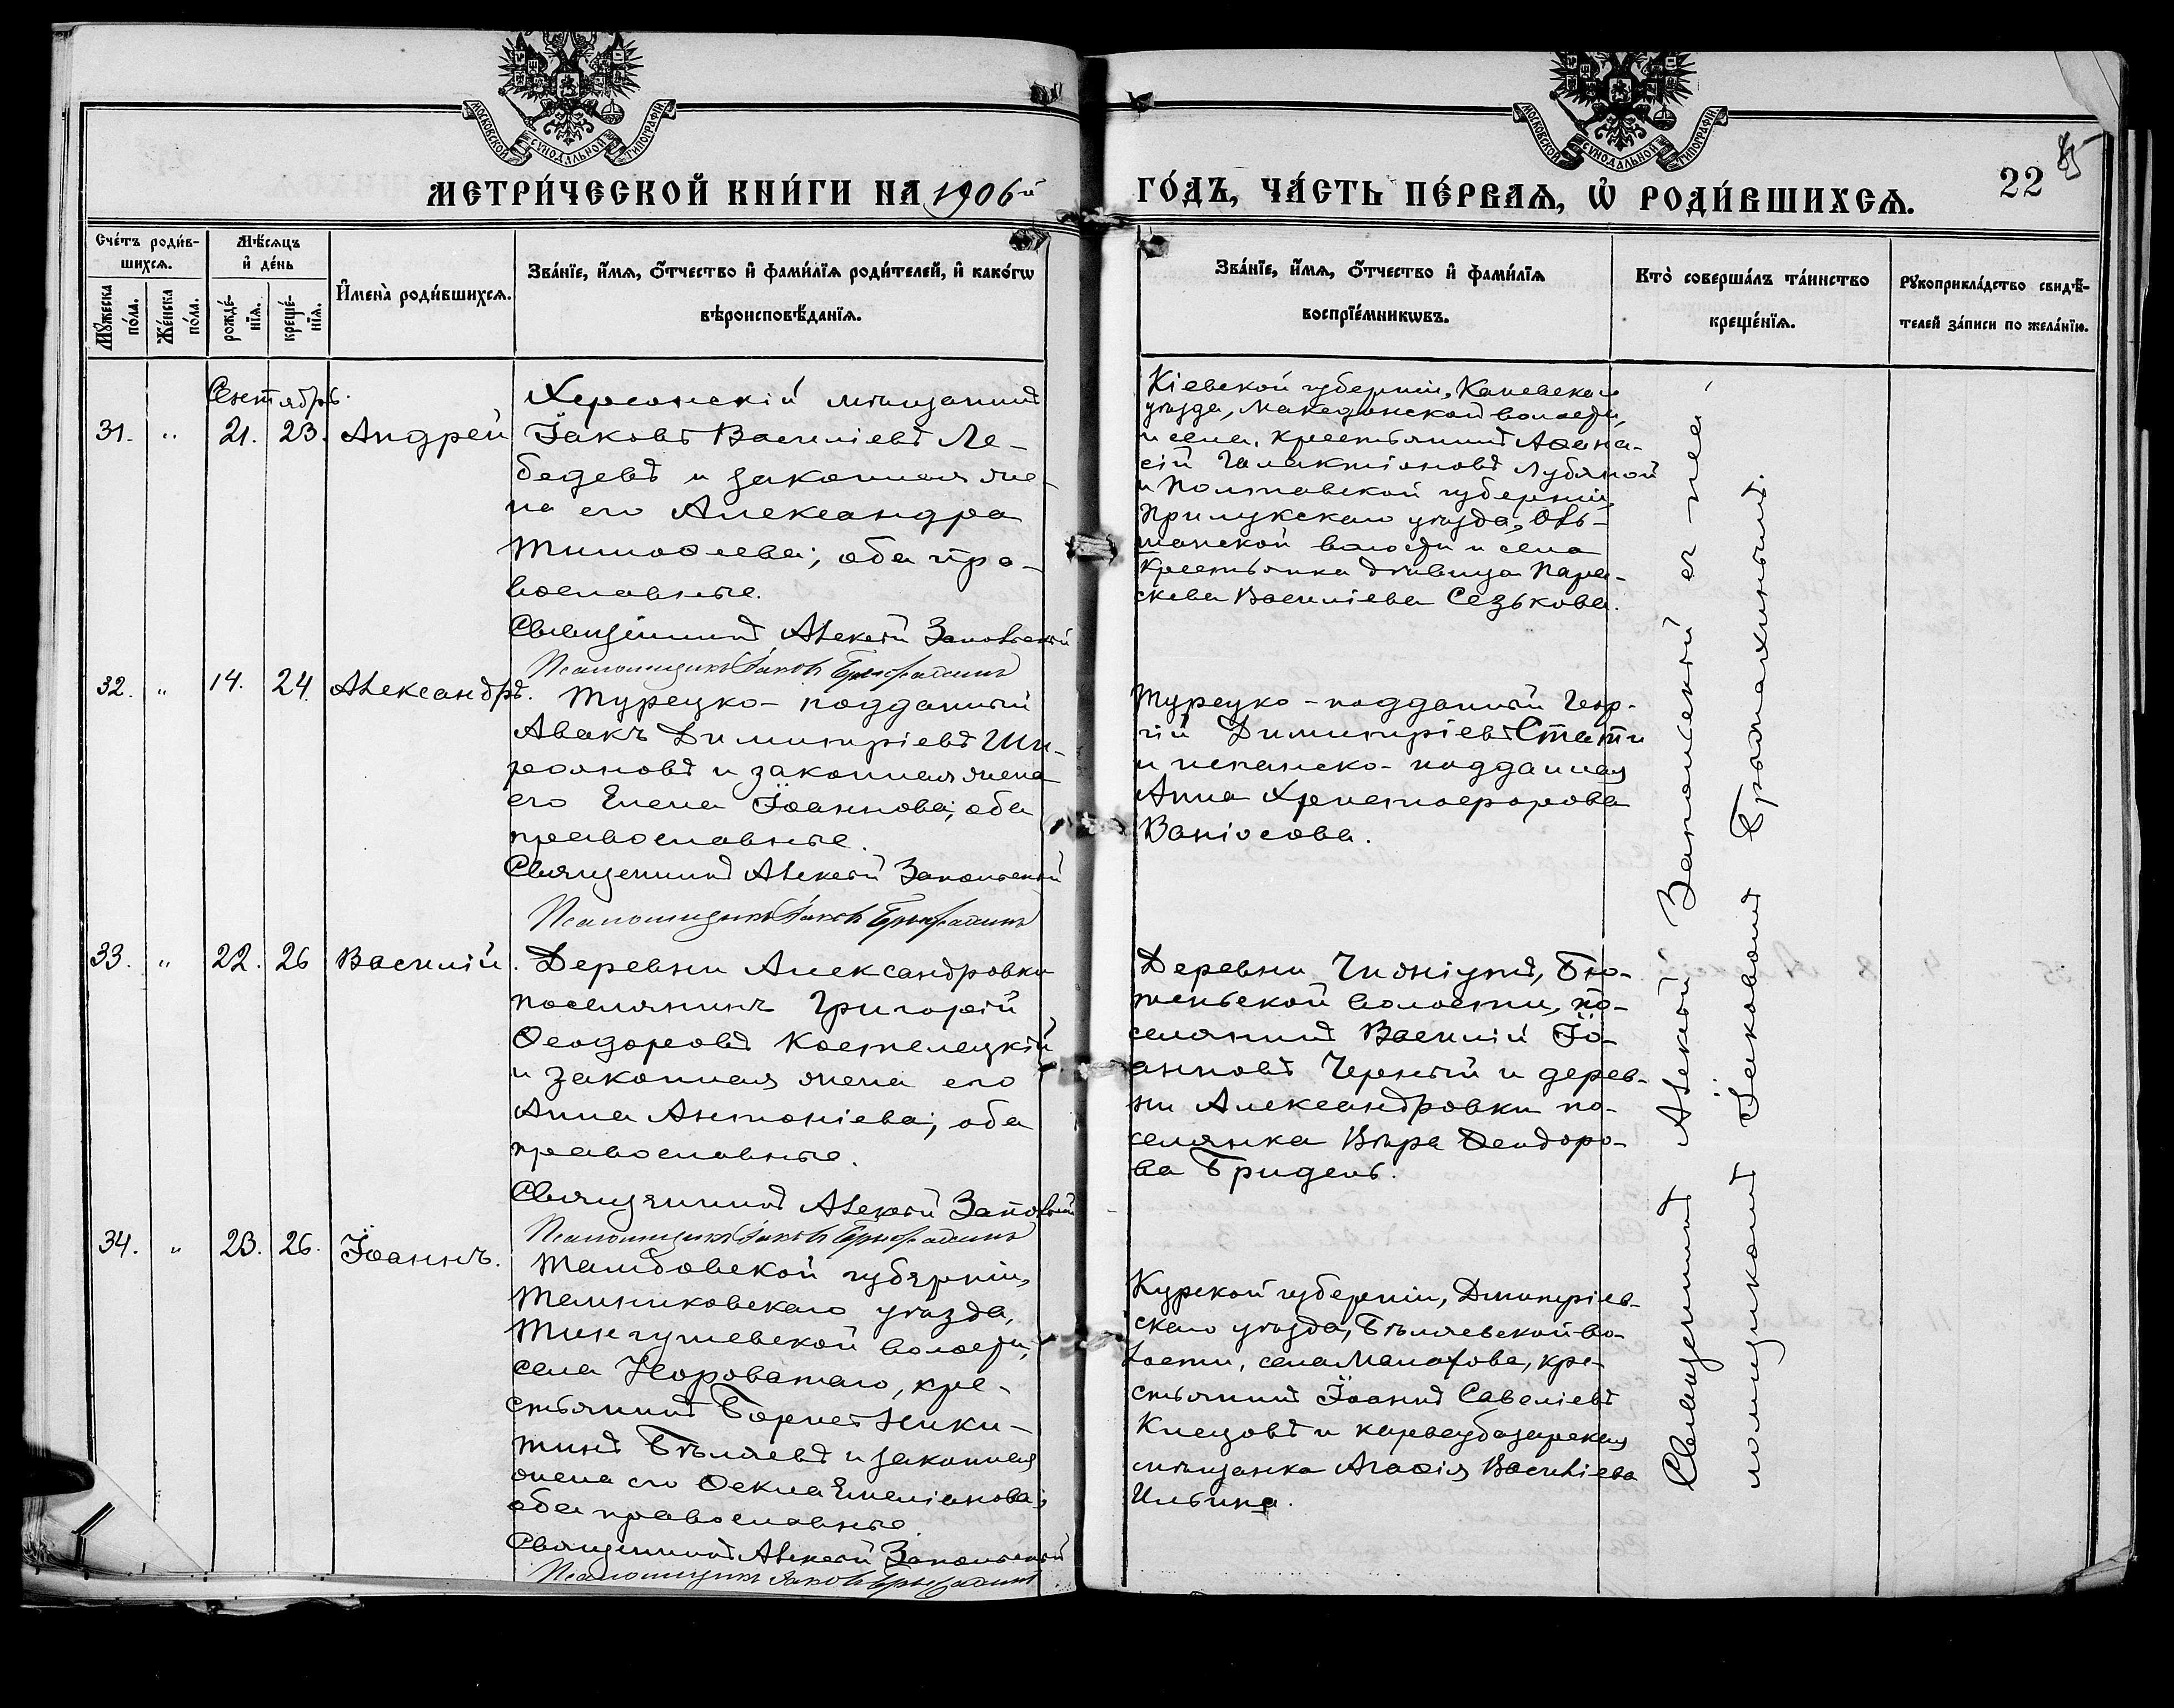 МОСКОВСКОЙ СУНОДАЛЬНОЙ ТИПОГРАФІИ
МОСКОВСКОЙ СУНОДАЛЬНОЙ ТИПОГРАФІИ
МЕТРИ́ЧЕСКОЙ КНИ́ГИ НА 1906й
ГО́ДЪ, ЧА́СТЬ ПЕ́РВАѦ, Ѡ҆ РОДИ́ВШИХСѦ.
22
Сче́тъ роди́в-
шихсѧ.
Мꙋ́жеска
по́ла.
Же́нска
по́ла.
Мѣ́сѧцъ
и҆ де́нь
рожде́-
нїѧ.
креще́-
нїѧ.
И҆мена̀ роди́вшихсѧ.
Зва́нїе, и҆́мѧ, ѻ҆́тчество и҆ фами́лїѧ роди́телей, и҆ како́гѡ
вѣроисповѣ́данїѧ.
Зва́нїе, и҆́мѧ, ѻ҆́тчество и҆ фами́лїѧ
воспрїе́мникѡвъ.
Кто̀ соверша́лъ та́инство
креще́нїѧ.
Рꙋкоприкла́дство свидѣ́-
телей за́писи по жела́нїю.
Сентябрь.
31. " 21. 23. Андрей
Херсонскій мѣщанинъ
Іаковъ Василіевъ Ле-
бедевъ и законная же-
на его Александра
Тимоѳеева; оба пра-
вославные.
Священникъ Алексѣй Запольскій
Псаломщикъ Іаковъ
Кіевской губерніи, Каневскаго
уѣзда, Македонской волости,
и села, крестьянинъ Аѳана-
сій Галактіоновъ Лубяной
и Полтавской губерніи,
Прилукскаго уѣзда, Оль-
шанской волости и села
крестьянка дѣвица Пара-
скева Василіева Сезькова.
32. " 14. 24. Александръ.
Турецко-подданный
Авакъ Димитріевъ Ши-
реяновъ и законная жена
его Елена Іоаннова; оба
православные.
Священникъ Алексѣй Запольскій
Псаломщикъ Іаковъ
Турецко-подданный Геор-
гій Димитріевъ Стати
и испанско-подданная
Анна Христофорова
Ваніосова.
33. " 22. 26 Василій.
Деревни Александровки
поселянинъ Григорій
Ѳеодоровъ Костелецкій
и законная жена его
Анна Антоніева; оба
православные.
Священникъ Алексѣй
Псаломщикъ Іаковъ
Деревни Бю-
теньской волости, по-
селянинъ Василій Іо-
анновъ Черный и дерев-
ни Александровки по-
селянка Вѣра Ѳеодоро-
ва Гридень.
34. " 23. 26. Іоаннъ.
Тамбовской губерніи,
Темниковскаго уѣзда,
Жегалевской волости,
села Нороватаго, кре-
стьянинъ Борисъ Ники-
тинъ Бѣляевъ и законная
жена его Ѳекла Емеліанова;
оба православные.
Священникъ Алексѣй Запольскій
Псаломщикъ Іаковъ
Курской губерніи, Дмитріев-
скаго уѣзда, Бѣляевской во-
лости, села Малахова, кре-
стьянинъ Іоаннъ Савеліевъ
Клецовъ и карасубазарская
мѣщанка Агаѳія Василіева
Ильина.
Священникъ Алексѣй Запольскій съ пса-
ломщикомъ Іаковомъ